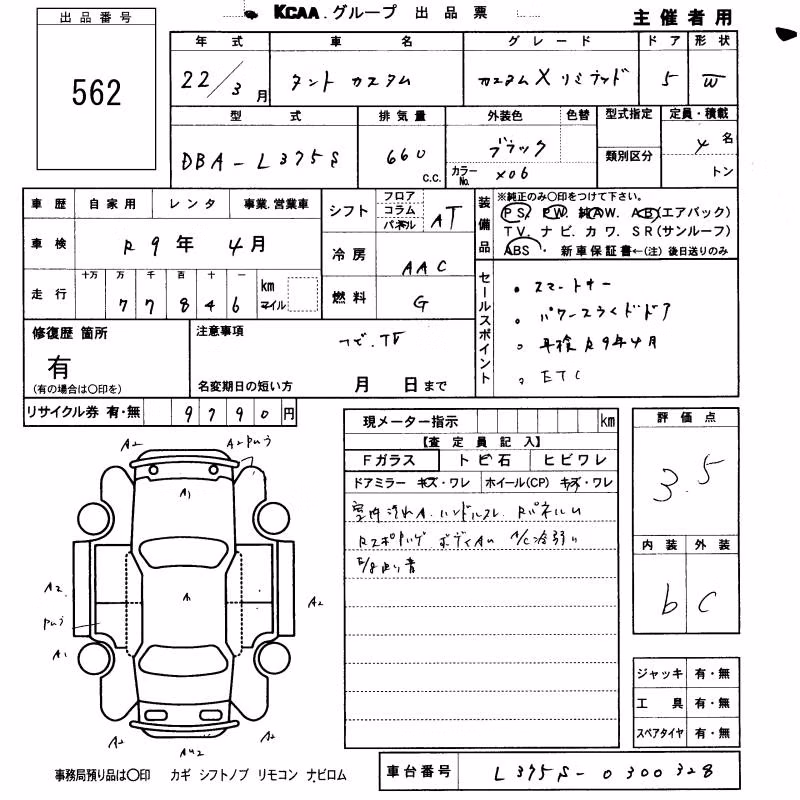 KCAA.グループ 出品票
主催者用
出品番号
562
年式 車名 グレード ドア 形状
22/3月 タント カスタム カスタムXリミテッド 5 W
型式 排気量 外装色 色替 型式指定 定員・積載
DBA-L375S 660 c.c. ブラック 類別区分 4名
カラーNo. X06 トン
車歴 自家用 レンタ 事業.営業車
車検 R9年 4月
走行 十万 万 千 百 十 一
7 7 8 4 6 km マイル
シフト フロア コラム パネル AT
冷房 AAC
燃料 G
装備品
※純正のみ○印をつけて下さい。
PS. PW. 純AW. AB(エアバック)
TV. ナビ. カワ. SR(サンルーフ)
ABS. 新車保証書←(注)後日送りのみ
セールスポイント
・スマートキー
・パワースライドドア
・車検R9年4月
・ETC
修復歴 箇所
有
(有の場合は○印を)
注意事項
ナビ.TV
名変期日の短い方 月 日まで
リサイクル券 有・無 9790円
現メーター指示 km
【査定員記入】
Fガラス トビ石 ヒビワレ
ドアミラー キズ・ワレ ホイール(CP) キズ・ワレ
室内汚れA.ハンドルスレ
A/C冷弱い
評価点
3.5
内装 外装
b C
A2 A2
A1
A2 A A2
A1
A2 A2
ジャッキ 有・無
工具 有・無
スペアタイヤ 有・無
事務局預り品は○印 カギ シフトノブ リモコン ナビロム
車台番号 L375S-0300328